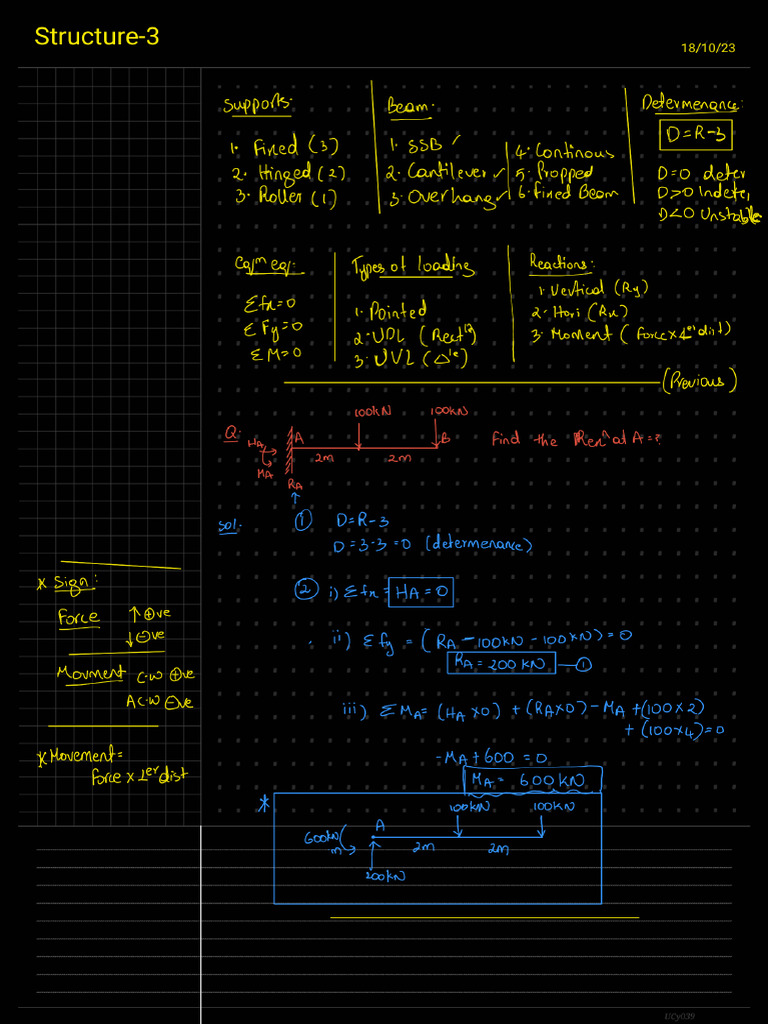 Structure-3
18/10/23
Supports:
1. Fixed (3)
2. Hinged (2)
3. Roller (1)
Beam:
1. SSB ✓
2. Cantilever ✓
3. Overhang ✓
4. Continous
5. Propped
6. Fixed Beam
Determenance:
D=R-3
D=0 deter
D>0 Indete,
D<0 Unstable
Eqᵐ eq:
Σfx=0
ΣFy=0
ΣM=0
Types of loading
1. Pointed
2. UDL (Rectˡᵉ)
3. UVL (Δˡᵉ)
Reactions:
1. Vertical (Ry)
2. Hori (Rx)
3. Moment (force×⊥ᵉʳ dist)
(Previous)
Q:
100kN 100kN
HA A B
2m 2m
MA
RA
↑
Find the Rexⁿ at A=?
Sol:
① D=R-3
D=3-3=0 (determenance)
② i) Σfx= HA=0
ii) Σfy = (RA -100kN -100kN)=0
RA=200kN —①
iii) ΣMA= (HA×0) + (RA×0) - MA + (100×2)
+ (100×4)=0
-MA+600 =0
MA= 600KN
* Sign:
Force ↑⊕ve
↓⊖ve
Movment C.W ⊕ve
A C.W ⊖ve
* Movement=
force × ⊥ᵉʳ dist
*
100kN 100kN
600kN A
m 2m 2m
200kN
UCy039